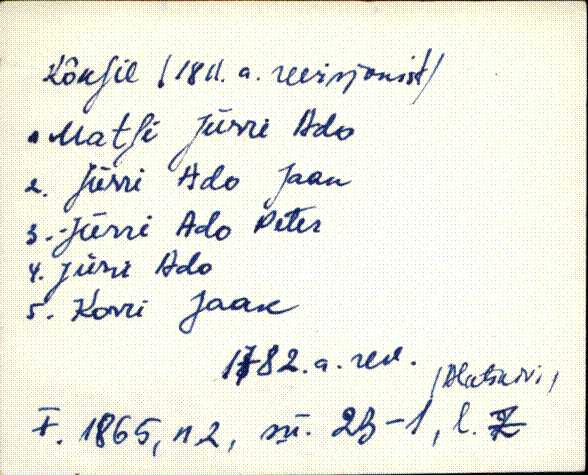 Kõnsil (1811. a. revisjonist)
1. Matsi Jürri Ado
2. Jürri Ado Jaan
3. Jürri Ado Peter
4. Jürri Ado
5. Korri Jaak
1782. a. rev.
(Alatskivi)
F. 1865, n. 2, sü. 23-1, l. 7